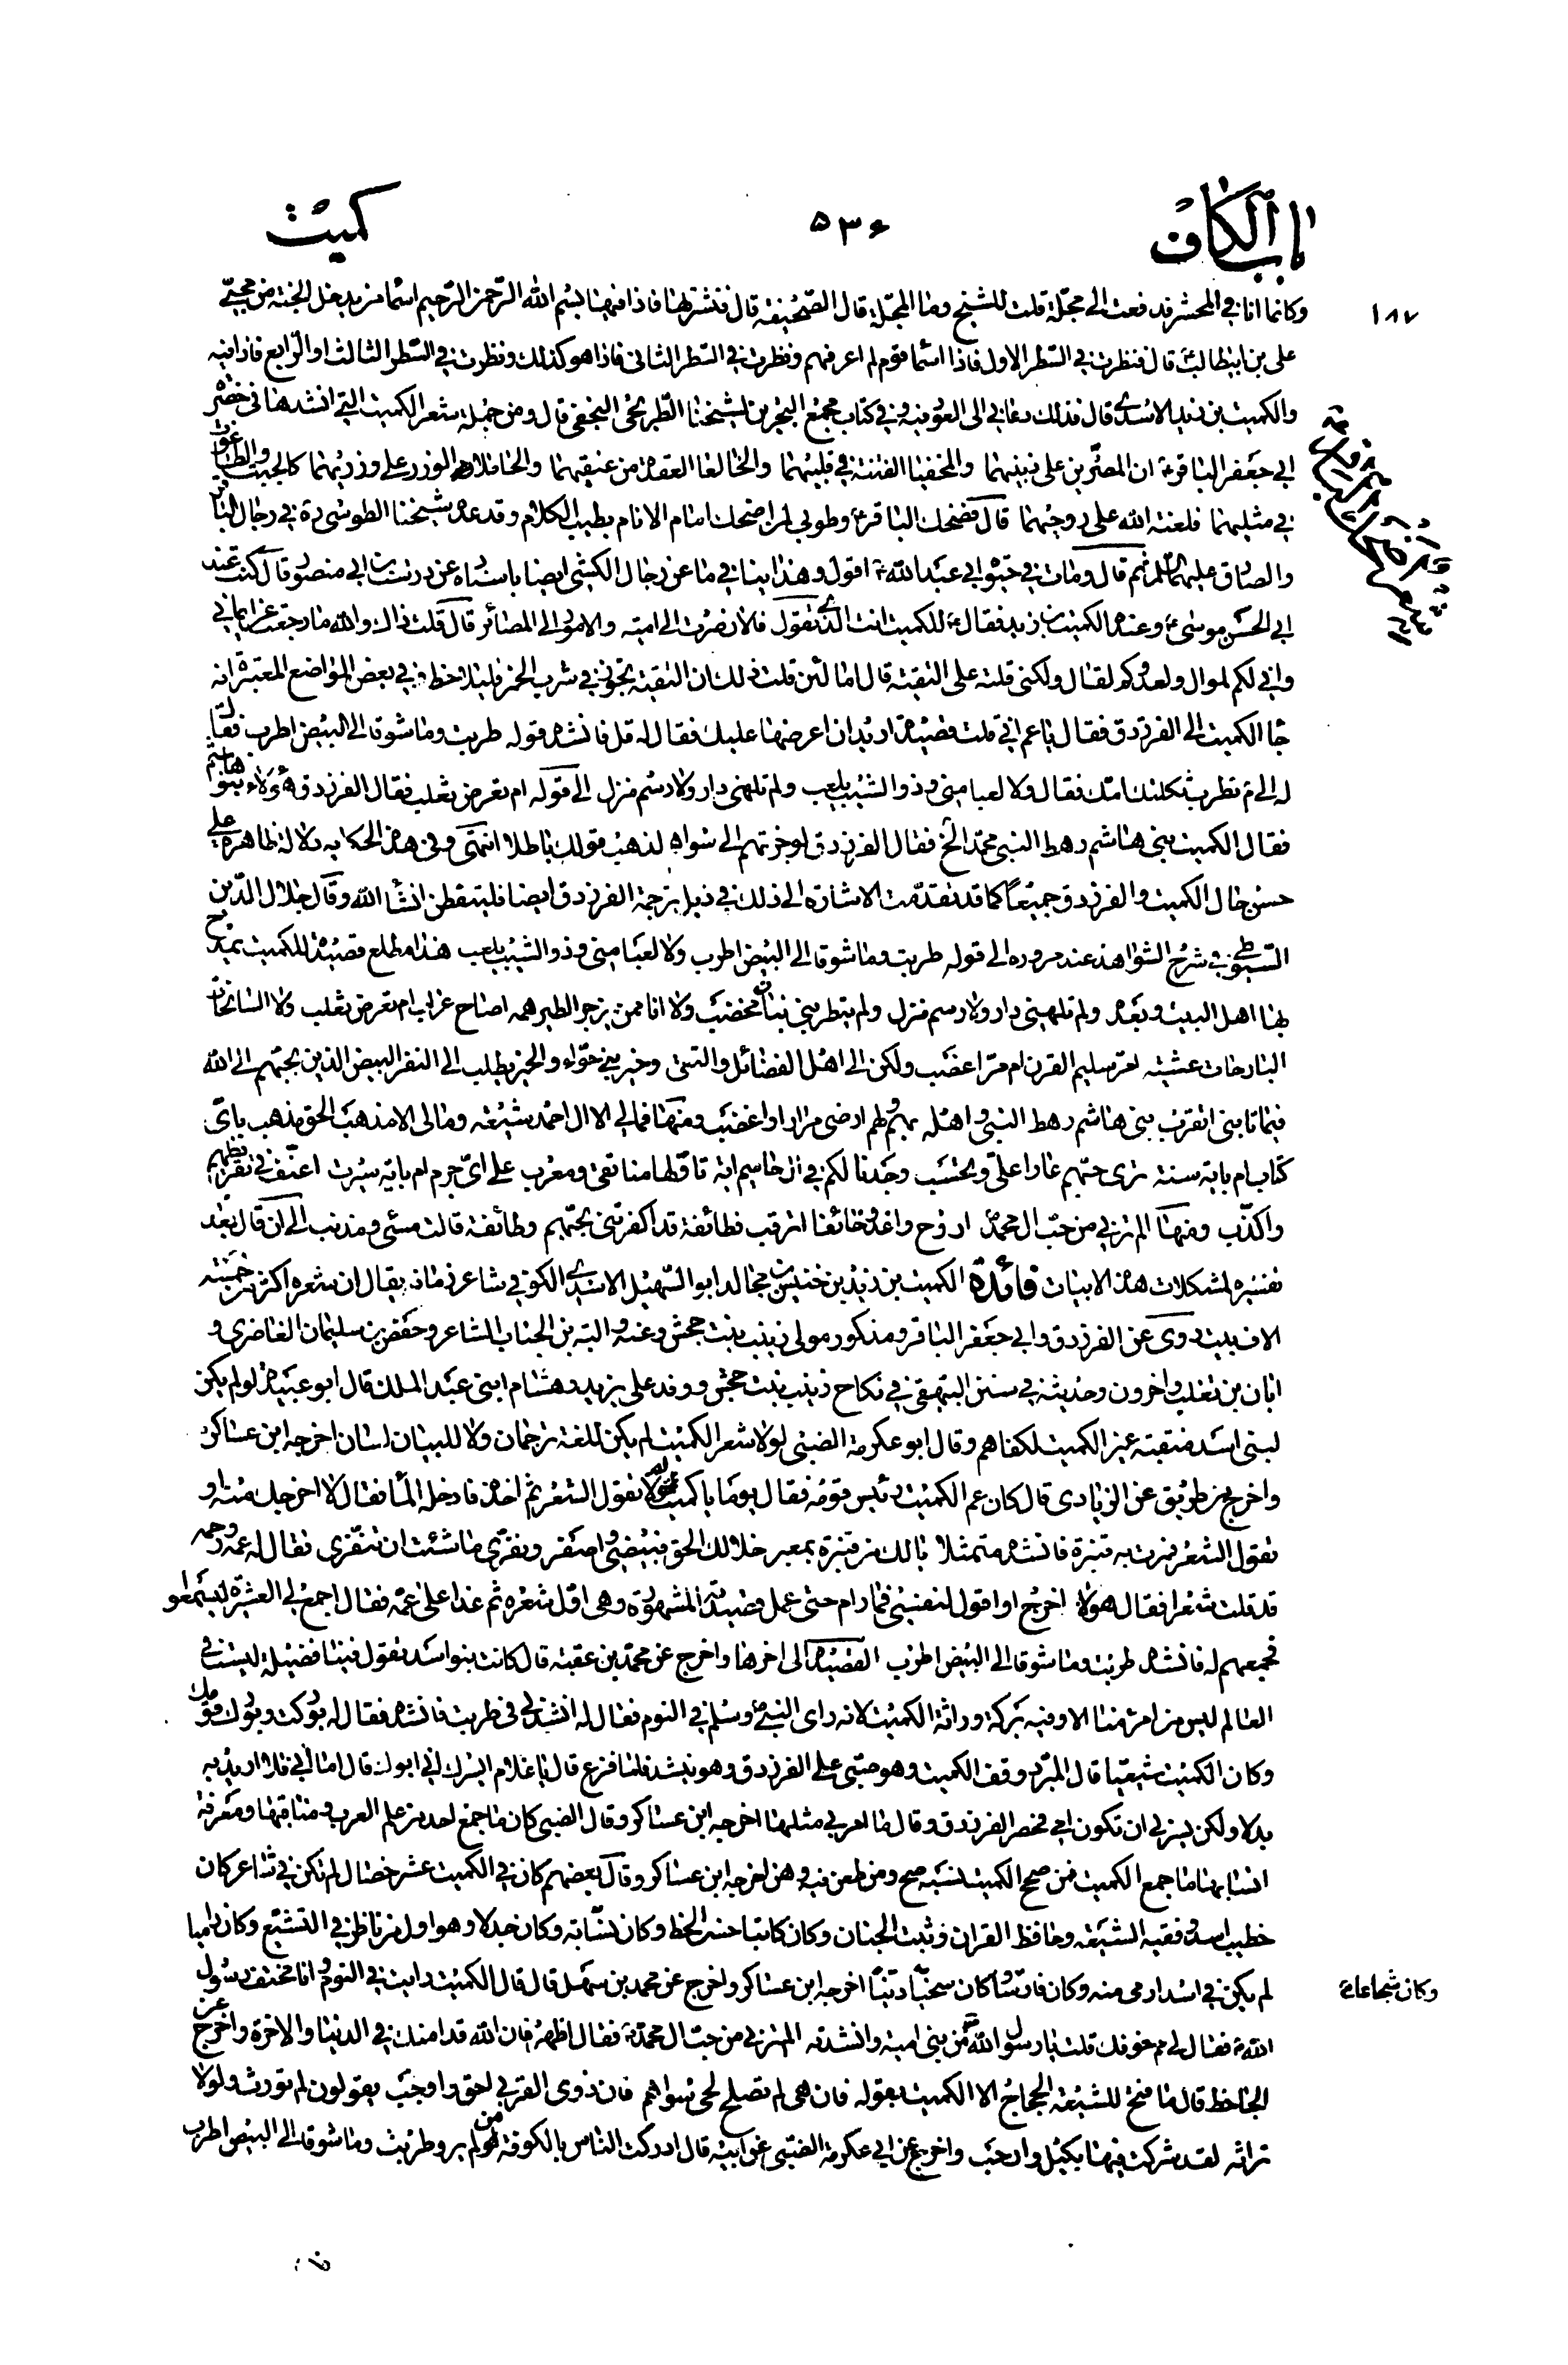 باب الكاف
۵۳۶
كميت
۱۸۷
وكانما انا في المحشر فدفعت الى مجلة قلت للشيخ وما المجلة قال الصحيفة قال فنشرتها فاذا فيها بسم الله الرحمن الرحيم اسما من يدخل الجنة من محبي
على بن ابيطالب قال فنظرت في السطر الاول فاذا اسما قوم لم اعرفهم ونظرت في السطر الثانى فاذا هو كذلك ونظرت في السطر الثالث او الرابع فاذا فيه
والكميت بن زيد الاسدى قال فذلك دعاني الى العود فيه وفي كتاب مجمع البحرين لشيخنا الطريحى النجفى قال ومن جملة شعر الكميت التي انشدها في حضرة
ابي جعفر الباقر ع ان المصرين على ذنبيهما والمخفيا الفتنة في قلبيهما والخالعا العقدة من عنقيهما والحاملا الوزر على وزريهما كالجبت والطاغوت
في مثليهما فلعنة الله على روحيهما قال فضحك الباقر ع وطوبي لمن اضحك امام الانام بطيب الكلام وقد عده شيخنا الطوسى ره في رجال الباقر
والصادق عليهما السلم ثم قال ومات في حيوة ابي عبد الله ع اقول وهذا ينافي ما عن رجال الكشى ايضا باسناده عن درست بن ابي منصور قال كنت عند
ابي الحسن موسى ع وعنده الكميت بن زيد فقال ع للكميت انت الذي تقول فالان صرت الى امية والامور الى المصائر قال قلت ذاك والله ما رجعت عن ايماني
واني لكم لموال ولعدوكم لقال ولكنى قلته على التقية قال اما لئن قلت ذلك ان التقية تجوز في شرب الخمر فليلاحظ وفي بعض المواضع المعتبرة انه
جا الكميت الى الفرزدق فقال يا عم اني قلت قصيدة اريد ان اعرضها عليك فقال له قل فانشده قوله طربت وما شوقا الى البيض اطرب فقال
له الى م تطرب ثكلتك امك فقال ولا لعبا مني وذو الشيب يلعب ولم تلهنى دار ولا رسم منزل الى قوله ام تعرض ثعلب فقال الفرزدق هؤلاء بنو هاشم
فقال الكميت بنى هاشم رهط النبي محمد الخ فقال الفرزدق لو جزتهم الى سواهم لذهب قولك باطلا انتهى وفى هذه الحكاية دلالة ظاهرة على
حسن حال الكميت والفرزدق جميعا كما قد تقدمت الاشارة الى ذلك في ذيل ترجمة الفرزدق ايضا فليتفطن انشا الله وقال جلال الدين
السيوطي في شرح الشواهد عند مروره الى قوله طربت وما شوقا الى البيض اطرب ولا لعبا مني وذو الشيب يلعب هذا مطلع قصيدة للكميت يمدح
بها اهل البيت وبعده ولم تلهيني دار ولا رسم منزل ولم يتطربني بنان مخضب ولا انا ممن يزجر الطير همه اصاح غراب ام تعرض ثعلب ولا السانحات
البارحات عشية امر سليم القرن ام مر اعضب ولكن الى اهل الفضائل والتقى وخير بني حواء والخير يطلب الى النفر البيض الذين بحبهم الى الله
فيما نابنى اتقرب بنى هاشم رهط النبي واهله بهم ولهم ارضى مرارا واغضب ومنها فمالي الا ال احمد شيعة ومالى الا مذهب الحق مذهب باى
كتاب ام باية سنة ترى حبهم عارا على وتحسب وجدنا لكم في ال حاميم اية تاولها منا تقى ومعرب على اى جرم ام باية سيرت اعنف في تقريظهم
واكذب ومنها الم ترني من حب ال محمد اروح واغدو خائفا اترقب فطائفة قد اكفرتنى بحبهم وطائفة قالت مسئ ومذنب الى ان قال بعد
تفسيره لمشكلات هذه الابيات فائدة الكميت بن زيد بن خنيس بن مجالد ابو السهيل الاسدى الكوفي شاعر زمانه يقال ان شعره اكثر من خمسة
الاف بيت روى عن الفرزدق وابي جعفر الباقر ومذكور مولى زينب بنت جحش وعنه والبة بن الحباب الشاعر وحفص بن سليمان الغاضرى و
ابان بن تغلب واخرون وحديثه في سنن البيهقي في نكاح زينب بنت جحش ووفد على يزيد وهشام ابنى عبد الملك قال ابو عبيدة لو لم يكن
لبنى اسد منقبة غير الكميت لكفاهم وقال ابو عكرمة الضبي لولا شعر الكميت لم يكن للغة ترجمان ولا للبيان لسان اخرجه ابن عساكر
واخرج من طريق عن الزيادى قال كان عم الكميت رئيس قومه فقال يوما يا كميت لم لا تقول الشعر ثم اخذه فادخله الماء فقال لا اخرجك منه او
تقول الشعر فمرت به قنبرة فانشده متمثلا يالك من قنبرة بمعمر خلالك الجو فبيضي واصفر ونقري ما شئت ان تنقرى فقال له عمه ورحمه
قد قلت شعرا فقال هو لا اخرج او اقول لنفسي فما رام حتى عمل قصيدته المشهورة وهى اول شعره ثم غدا على عمه فقال اجمع لي العشيرة ليسمعوا
فجمعهم له فانشده طربت وما شوقا الى البيض اطرب القصيدة الى اخرها واخرج عن محمد بن عقبة قال كانت بنو اسد تقول فينا فضيلة ليست في
العالم ليس من امرئ منا الا وفيه بركة وراثة الكميت لانه راى النبي ص وسلم في النوم فقال له انشدني طربت فانشده فقال له بوركت وبورك قومك
وكان الكميت شيعيا قال المبرد وقف الكميت وهو صبي على الفرزدق وهو ينشد فلما فرغ قال يا غلام ايسرك اني ابوك قال اما ابي فلا اريد به
بدلا ولكن يسرني ان تكون امي فحصر الفرزدق وقال ما مر بي مثلها اخرجه ابن عساكر وقال الضبي كان ما جمع احد من علم العرب ومناقبها ومعرفة
انسابها ما جمع الكميت فمن صحح الكميت نسبه صح ومن طعن فيه وهن اخرجه ابن عساكر وقال بعضهم كان في الكميت عشر خصال لم تكن في شاعر كان
خطيب اسد وفقيه الشيعة وحافظ القران وثبت الجنان وكان كاتبا حسن الخط وكان نسابة وكان جدلا وهو اول من ناظر في التشيع وكان راميا
لم يكن في اسد ارمى منه وكان فارسا وكان سخيا دينا اخرجه ابن عساكر واخرج عن محمد بن سهل قال قال الكميت رايت في النوم وانا مختف رسول
وكان شجاعا
الله ص فقال لي مم خوفك قلت يا رسول الله من بنى امية وانشدته الم ترني من حب ال محمد فقال اظهر فان الله قد امنك في الدنيا والاخرة واخرج عن
الجاحظ قال ما فتح للشيعة الحجاج الا الكميت بقوله فان هى لم تصلح لحى سواهم فان ذوى القربي احق واوجب يقولون لم يورث ولولا
تراثه لقد شركت فيها بكيل وارحب واخرج عن ابي عكرمة الضبي عن ابيه قال ادركت الناس بالكوفة من لم يرو طربت وما شوقا الى البيض اطرب